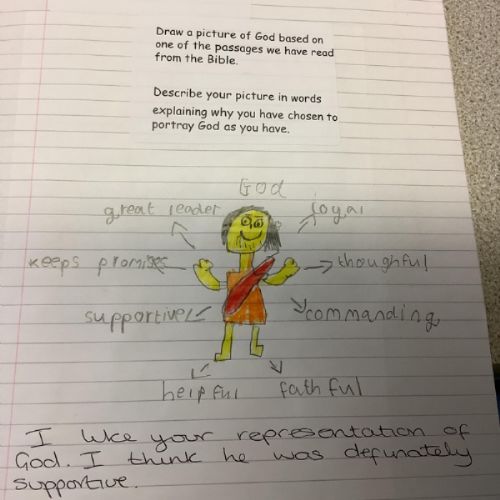 Draw a picture of God based on
one of the passages we have read
from the Bible.
Describe your picture in words
explaining why you have chosen to
portray God as you have.
God
great leader
loyal
keeps promises
thoughful
supportive
commanding
helpful
fathful
I like your representation of
God. I think he was defunately
supportive.